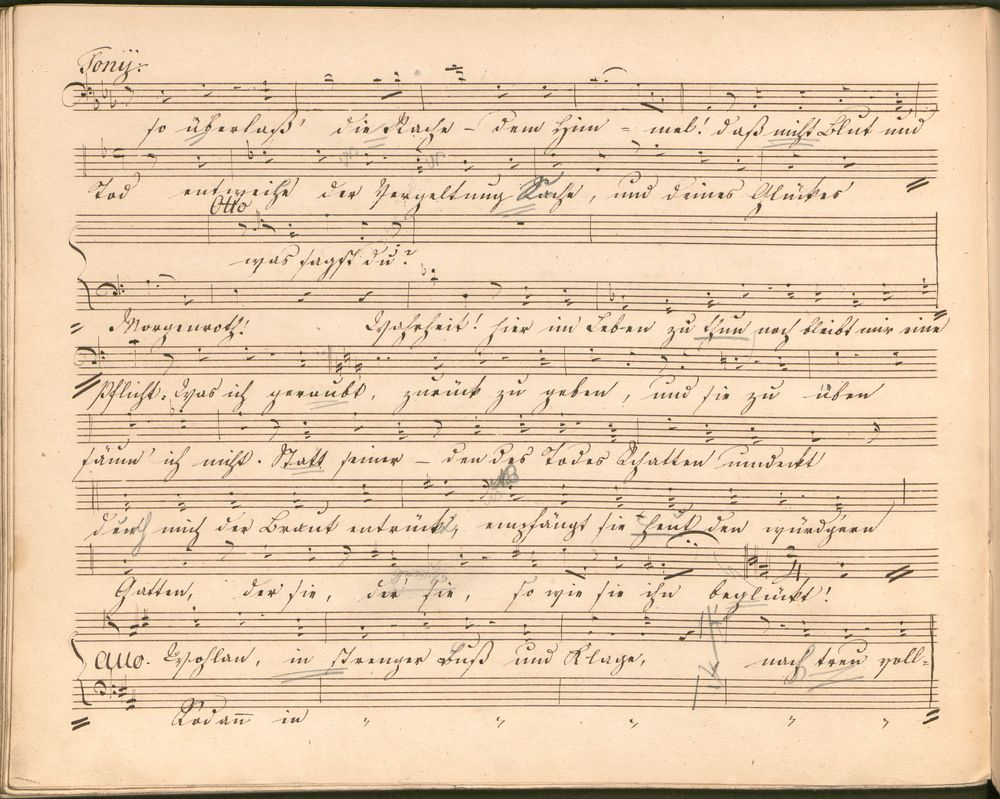 Tony:
so überlaß' die Rache – dem Him = mel! daß nicht Blut und
Tod entweihe der Vergeltung Sache, und deines Glückes
Otto
was sagst du?
Morgenroth! Wahrheit! hier im Leben zu thun noch bleibt mir eine
Pflicht. Was ich geraubt, zurück zu geben, und sie zu üben
säum' ich nicht. Statt seiner – den des Todes Schatten umdeckt
durch mich der Braut entrückt, empfängt sie heut den würdgern
Gatten, der sie, der sie, so wie sie ihn beglückt!
Otto. Wohlan, in strenger Buß und Klage, nach treu voll=
Sodann in " " " " "